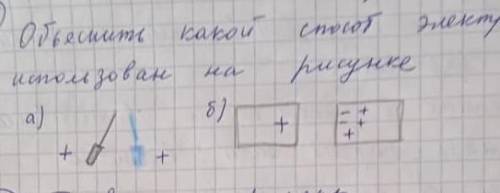 Объяснить какой способ электр
использован на рисунке
а) б)
+ + + − +
− +
+